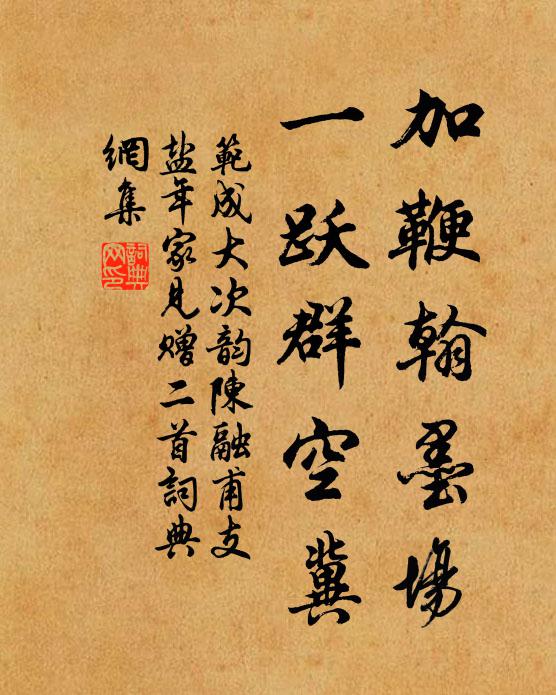 加鞭翰墨場
一跃群空冀
範成大次韵陳融甫支
盐年家見赠二首詞典
網集
詞典
网印